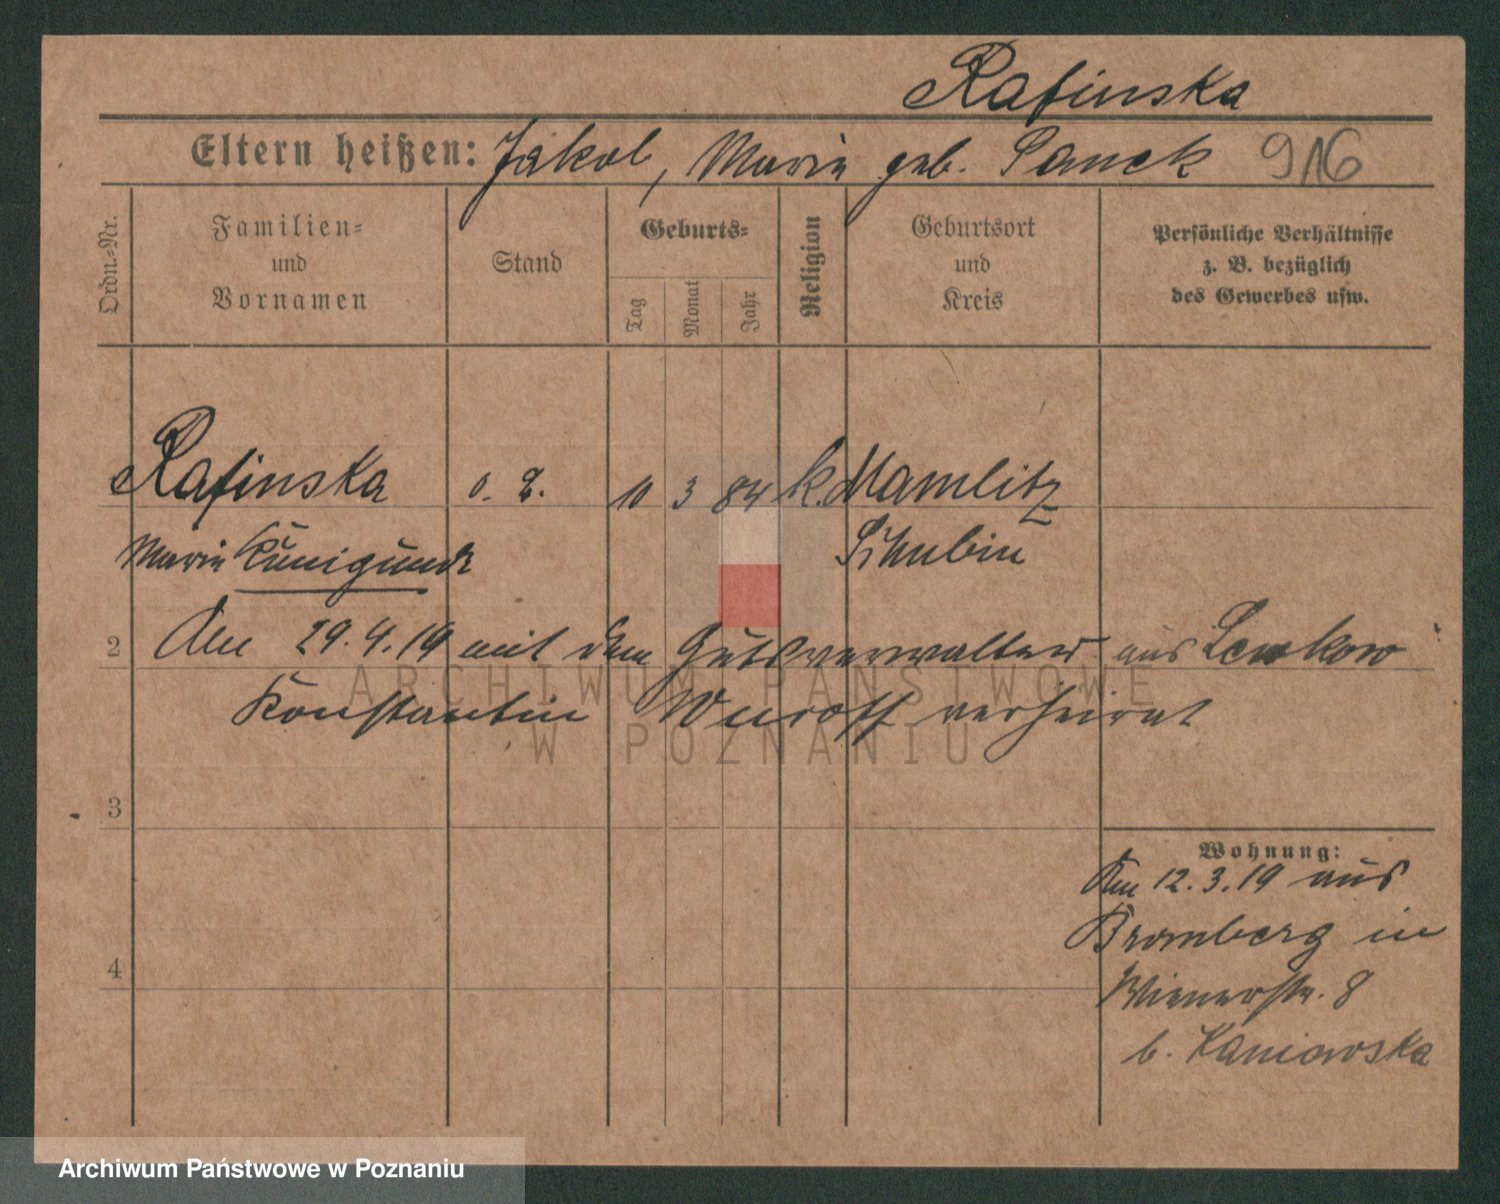 Rafinska
Eltern heißen: Jakob, Marie geb. Panek 916
Ordn.-Nr.
Familien-
und
Vornamen
Stand
Geburts-
Tag
Monat
Jahr
Religion
Geburtsort
und
Kreis
Persönliche Verhältnisse
z. B. bezüglich
des Gewerbes usw.
Rafinska o. 10 3 84 k. Mamlitz
Marie Kunigunde Schubin
2 Am 29.4.19 mit dem Gutsverwalter aus Lewkow
Konstantin verheirat
3
4
Wohnung:
Am 12.3.19 aus
Bromberg in
Wienerstr. 8
b. Kaniowska
ARCHIWUM PAŃSTWOWE
W POZNANIU
Archiwum Państwowe w Poznaniu